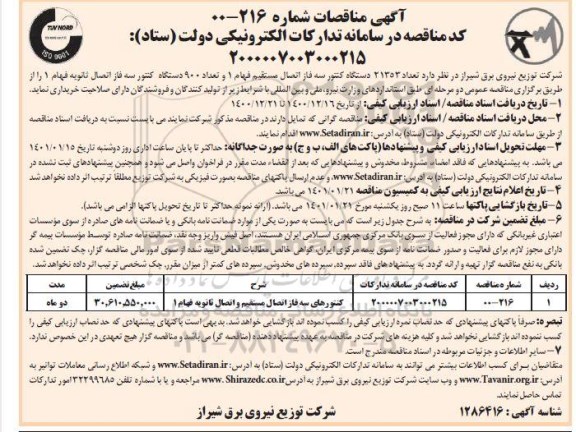 آگهی مناقصات شماره ۲۱۶-۰۰
کد مناقصه در سامانه تدارکات الکترونیکی دولت (ستاد):
۲۰۰۰۰۰۷۰۰۳۰۰۰۲۱۵
TUV NORD
ISO 9001
شرکت توزیع نیروی برق شیراز در نظر دارد تعداد ۲۱۳۵۳ دستگاه کنتور سه فاز اتصال مستقیم فهام ۱ و تعداد ۹۰۰ دستگاه کنتور سه فاز اتصال ثانویه فهام ۱ را از
طریق برگزاری مناقصه عمومی دو مرحله ای طبق استانداردهای وزارت نیرو، ملی و بین المللی با شرایط زیر از تولید کنندگان و فروشندگان دارای صلاحیت خریداری نماید.
۱- تاریخ دریافت اسناد مناقصه/ اسناد ارزیابی کیفی: از تاریخ ۱۴۰۰/۱۲/۱۶ تا ۱۴۰۰/۱۲/۲۱
۲- محل دریافت اسناد مناقصه/ اسناد ارزیابی کیفی: مناقصه گرانی که تمایل دارند در مناقصه مذکور شرکت نمایند می بایست نسبت به دریافت اسناد مناقصه
از طریق سامانه تدارکات الکترونیکی دولت (ستاد) به آدرس: www.Setadiran.ir اقدام نمایند.
۳- مهلت تحویل اسناد ارزیابی کیفی و پیشنهادها (پاکت های الف، ب و ج) به صورت جداگانه: حداکثر تا پایان ساعت اداری روز دوشنبه تاریخ ۱۴۰۱/۰۱/۱۵
می باشد. به پیشنهادهایی که فاقد امضاء، مشروط، مخدوش و پیشنهادهایی که بعد از انقضاء مدت مقرر در فراخوان واصل می شود و همچنین پیشنهادهای ثبت نشده در
سامانه تدارکات الکترونیکی دولت (ستاد) به آدرس: www.Setadiran.ir و عدم ارسال پاکتهای مناقصه بصورت فیزیکی به شرکت توزیع مطلقاً ترتیب اثر داده نخواهد شد
۴- تاریخ اعلام نتایج ارزیابی کیفی به کمیسیون مناقصه ۱۴۰۱/۰۱/۲۱ می باشد.
۵- تاریخ بازگشایی پاکتها ساعت ۱۱ صبح روز یکشنبه مورخ ۱۴۰۱/۰۱/۲۱ می باشد. (ارائه نمونه حداکثر تا تاریخ تحویل پاکتها الزامی می باشد).
۶- مبلغ تضمین شرکت در مناقصه: به شرح جدول زیر است که می بایست به صورت یکی از موارد ضمانت نامه بانکی و یا ضمانت نامه های صادره از سوی مؤسسات
اعتباری غیربانکی که دارای مجوز فعالیت از سوی بانک مرکزی جمهوری اسلامی ایران هستند، اصل فیش واریز وجه نقد، ضمانت نامه صادره توسط مؤسسات بیمه گر
دارای مجوز لازم برای فعالیت و صدور ضمانت نامه از سوی بیمه مرکزی ایران، گواهی خالص مطالبات قطعی تایید شده از سوی امور مالی مناقصه گزار، چک تضمین شده
بانکی به نفع مناقصه گزار تهیه و ارائه گردد. به پیشنهادهای فاقد سپرده، سپرده های مخدوش، سپرده های کمتر از میزان مقرر، چک شخصی ترتیب اثر داده نخواهد شد.
ردیف شماره مناقصه کد مناقصه در سامانه تدارکات شرح مبلغ تضمین مدت
۱ ۲۱۶-۰۰ ۲۰۰۰۰۰۷۰۰۳۰۰۰۲۱۵ کنتورهای سه فاز اتصال مستقیم و اتصال ثانویه فهام ۱ ۳۰,۶۱۰,۵۵۰,۰۰۰ دو ماه
تبصره: صرفاً پاکتهای پیشنهادی که حد نصاب نمره ارزیابی کیفی را کسب نموده اند بازگشایی خواهد شد. بدیهی است پاکتهای پیشنهادی که حد نصاب ارزیابی کیفی را
کسب ننموده اند بازگشایی نخواهد شد و کلیه هزینه های شرکت در مناقصه به عهده پیشنهاد دهنده (مناقصه گر) می باشد و مناقصه گزار هیچ تعهدی در این خصوص ندارد.
۷- سایر اطلاعات و جزئیات مربوطه در اسناد مناقصه مندرج است.
متقاضیان برای کسب اطلاعات بیشتر می توانند به سامانه تدارکات الکترونیکی دولت (ستاد) به آدرس: www.Setadiran.ir و شبکه اطلاع رسانی معاملات توانیر به
آدرس www.Tavanir.org.ir و وب سایت شرکت توزیع نیروی برق شیراز به آدرس www. Shirazedc.co.ir مراجعه و یا با شماره تلفن ۳۲۲۹۹۶۸۵ امور تدارکات
تماس حاصل نمایند.
شناسه آگهی : ۱۲۸۶۴۱۶
شرکت توزیع نیروی برق شیراز